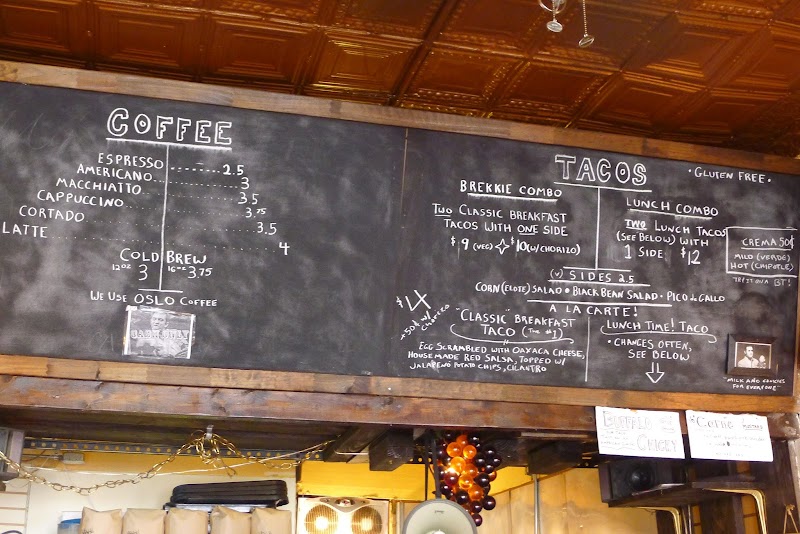 COFFEE
ESPRESSO 2.5
AMERICANO 3
MACCHIATTO 3.5
CAPPUCCINO 3.75
CORTADO 3.5
LATTE 4
COLD BREW
12oz 3 16oz 3.75
WE USE OSLO COFFEE
TACOS
• GLUTEN FREE •
BREKKIE COMBO
TWO CLASSIC BREAKFAST
TACOS WITH ONE SIDE
$9 (VEG) $10 (W/CHORIZO)
LUNCH COMBO
TWO LUNCH TACOS
(SEE BELOW) WITH
1 SIDE $12
CREMA 50¢
MILD (VERDE)
HOT (CHIPOTLE)
(V) SIDES 2.5
CORN (ELOTE) SALAD • BLACK BEAN SALAD • PICO de GALLO
A LA CARTE!
$4
+50¢ W/
CHORIZO
"CLASSIC" BREAKFAST
TACO (THE #1)
EGG SCRAMBLED WITH OAXACA CHEESE,
HOUSEMADE RED SALSA, TOPPED W/
JALAPEÑO POTATO CHIPS, CILANTRO
LUNCH TIME! TACO
• CHANGES OFTEN,
SEE BELOW
"MILK AND COOKIES
FOR EVERYONE"
BUFFALO
CHICKEN